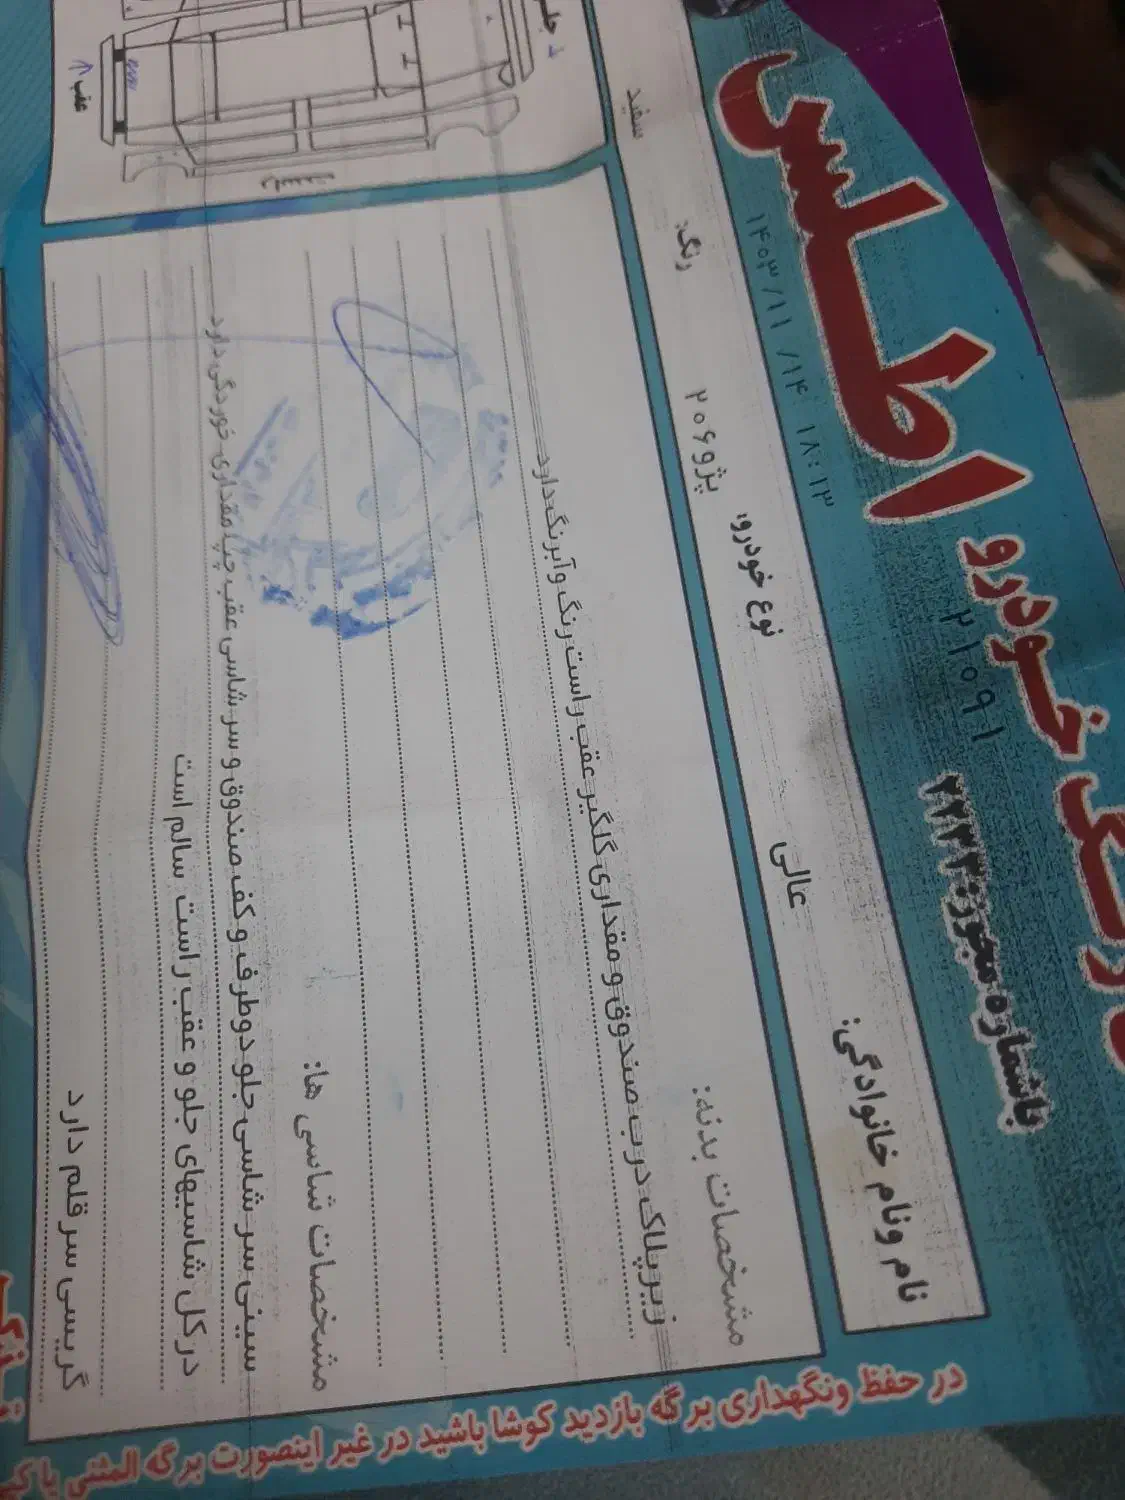 اطلس
خودرو
۲۱۰۹۱
باشماره مجوز: ۲۲۳۳
۱۴۰۳/۱۱/۱۴ ۱۸:۱۳
نام ونام خانوادگی: عالی نوع خودرو: پژو۲۰۶ رنگ: سفید
مشخصات بدنه:
زیرپلاک درب صندوق و مقداری گلگیر عقب راست رنگ وآبرنگ دارد
مشخصات شاسی ها:
سینی سر شاسی جلو دوطرف و کف صندوق و سر شاسی عقب چپ مقداری خوردگی دارد
درکل شاسیهای جلو و عقب راست سالم است
گریسی سرقلم دارد
عقب
در حفظ ونگهداری برگه بازدید کوشا باشید در غیر اینصورت برگه المثنی یا